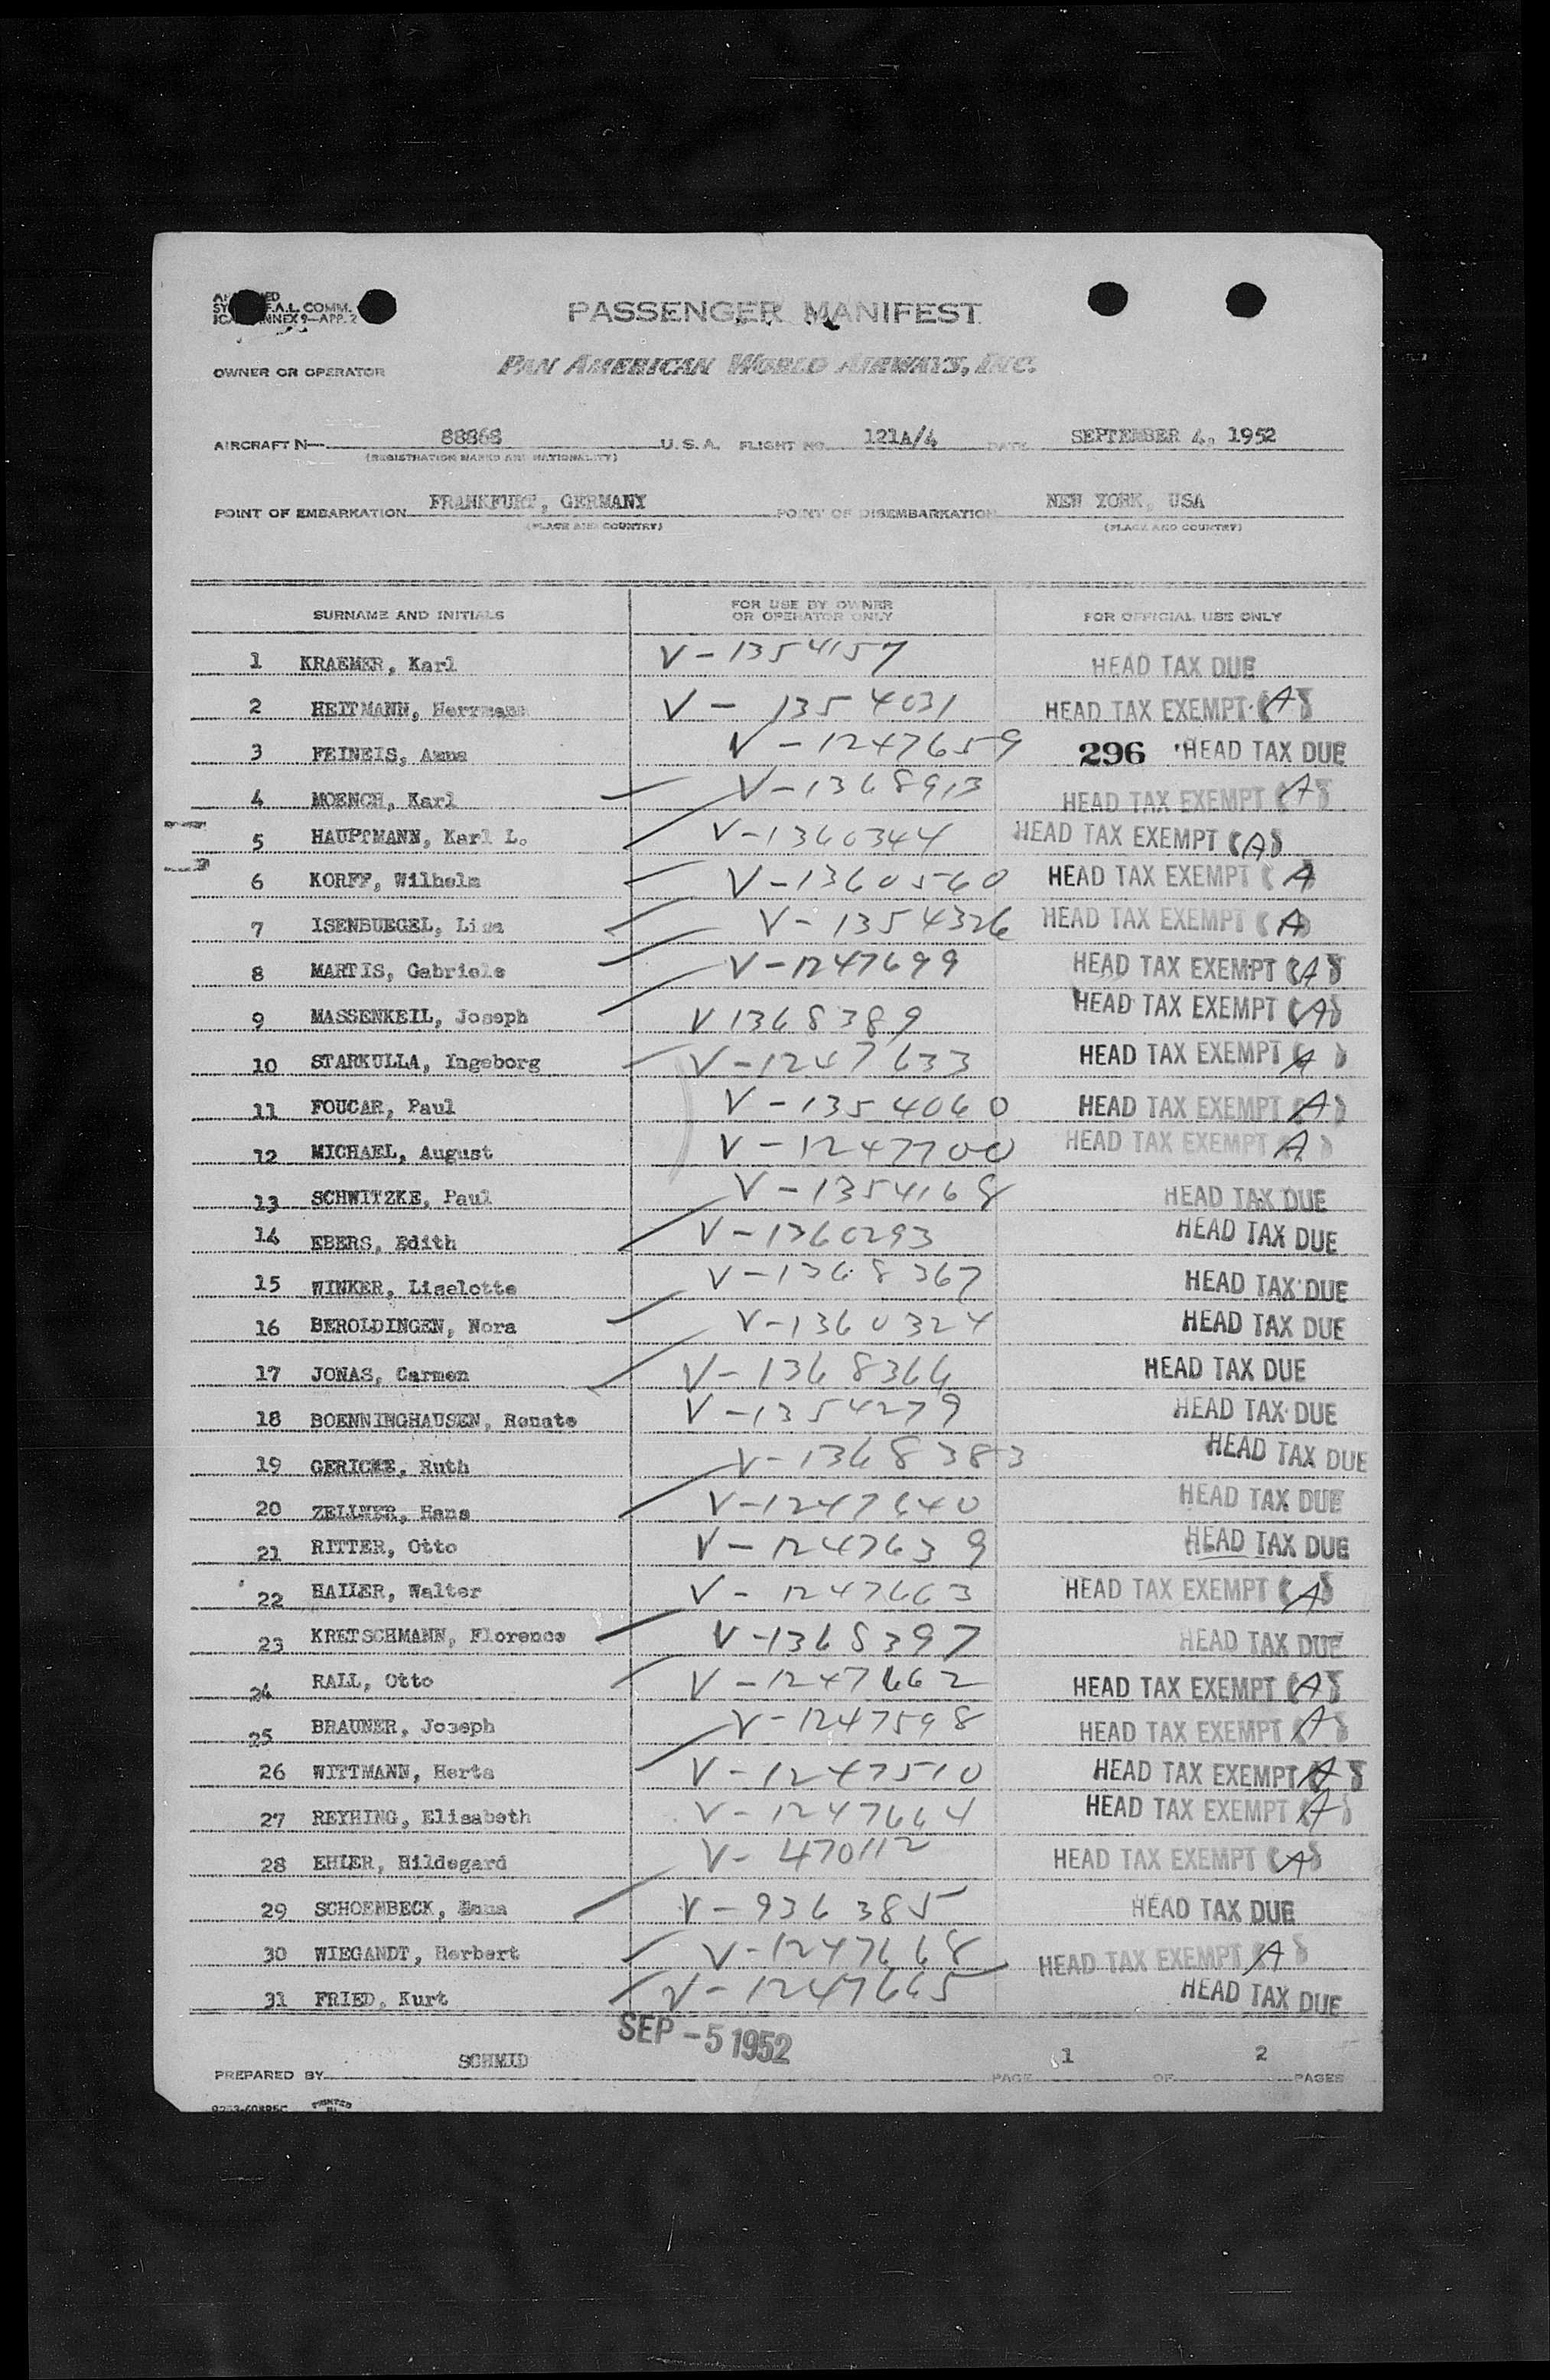 F.A.L. COMM.
ANNEX 9—APP. 2
PASSENGER MANIFEST
OWNER OR OPERATOR PAN AMERICAN WORLD AIRWAYS, INC.
AIRCRAFT N— 88868 U.S.A. FLIGHT NO. 121A/4 DATE SEPTEMBER 4, 1952
(REGISTRATION MARKS AND NATIONALITY)
POINT OF EMBARKATION FRANKFURT, GERMANY POINT OF DISEMBARKATION NEW YORK, USA
(PLACE AND COUNTRY) (PLACE AND COUNTRY)
SURNAME AND INITIALS FOR USE BY OWNER OR OPERATOR ONLY FOR OFFICIAL USE ONLY
1 KRAEMER, Karl V-1354157 HEAD TAX DUE
2 HEITMANN, Herrmann V-1354031 HEAD TAX EXEMPT (A)
3 FEINEIS, Anna V-1247659 296 HEAD TAX DUE
4 MOENCH, Karl V-1368913 HEAD TAX EXEMPT (A)
5 HAUPTMANN, Karl L. V-1360344 HEAD TAX EXEMPT (A)
6 KORFF, Wilhelm V-1360560 HEAD TAX EXEMPT (A)
7 ISENBUEGEL, V-1354326 HEAD TAX EXEMPT (A)
8 MARTIS, Gabriele V-1247699 HEAD TAX EXEMPT (A)
9 MASSENKEIL, Joseph V 1368389 HEAD TAX EXEMPT (A)
10 STARKULLA, Ingeborg V-1247633 HEAD TAX EXEMPT (A)
11 FOUCAR, Paul V-1354060 HEAD TAX EXEMPT (A)
12 MICHAEL, August V-1247700 HEAD TAX EXEMPT (A)
13 SCHWITZKE, Paul V-1354168 HEAD TAX DUE
14 EBERS, Edith V-1360293 HEAD TAX DUE
15 WINKER, Liselotte V-1368367 HEAD TAX DUE
16 BEROLDINGEN, Nora V-1360324 HEAD TAX DUE
17 JONAS, Carmen V-1368366 HEAD TAX DUE
18 BOENNINGHAUSEN, Renate V-1354279 HEAD TAX DUE
19 GERICKE, Ruth V-1368383 HEAD TAX DUE
20 ZELLMER, Hans V-1247640 HEAD TAX DUE
21 RITTER, Otto V-1247639 HEAD TAX DUE
22 HAILER, Walter V-1247663 HEAD TAX EXEMPT (A)
23 KRETSCHMANN, Florence V-1368397 HEAD TAX DUE
24 RALL, Otto V-1247662 HEAD TAX EXEMPT (A)
25 BRAUNER, Joseph V-1247598 HEAD TAX EXEMPT (A)
26 WITTMANN, Herta V-1247510 HEAD TAX EXEMPT (A)
27 REYHING, Elisabeth V-1247664 HEAD TAX EXEMPT (A)
28 EHLER, Hildegard V-470112 HEAD TAX EXEMPT (A)
29 SCHOENBECK, V-936385 HEAD TAX DUE
30 WIEGANDT, Herbert V-1247668 HEAD TAX EXEMPT (A)
31 FRIED, Kurt V-1247665 HEAD TAX DUE
SEP -5 1952
PREPARED BY SCHMID PAGE 1 OF 2 PAGES
PRINTED